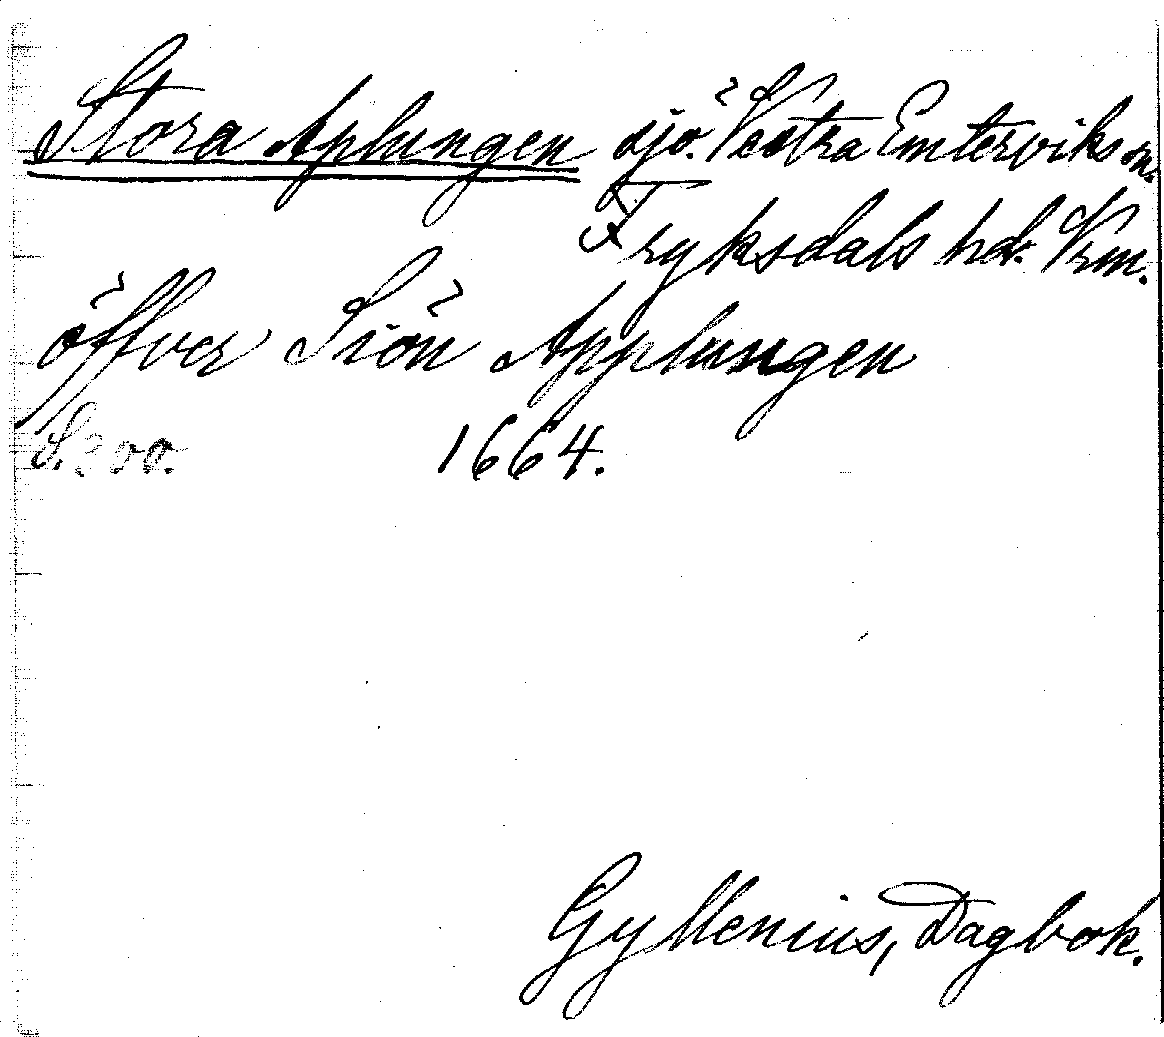 Stora Aplungen sjö. Vestra Emterviks sn.
Fryksdals hd. Vrm.
öffver Siön Applungen
S. 200. 1664.
Gyllenius, Dagbok.